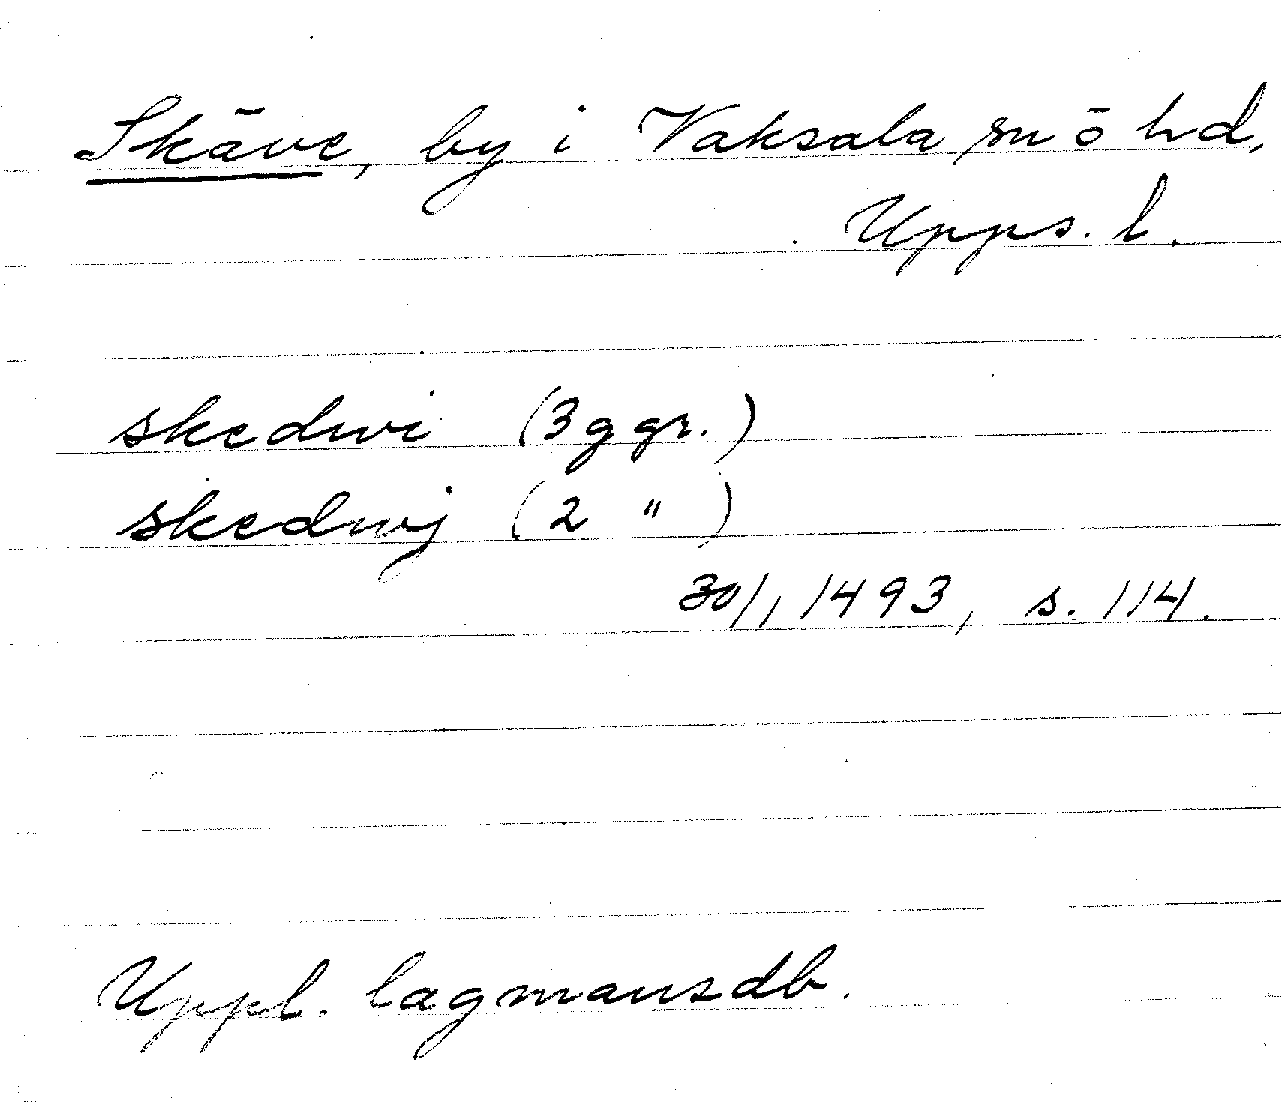 Skäve, by i Vaksala sn ö hd,
Upps. l.
skedwi (3 ggr.)
skedwj (2 " )
30/1 1493, s. 114.
Uppl. lagmansdb.